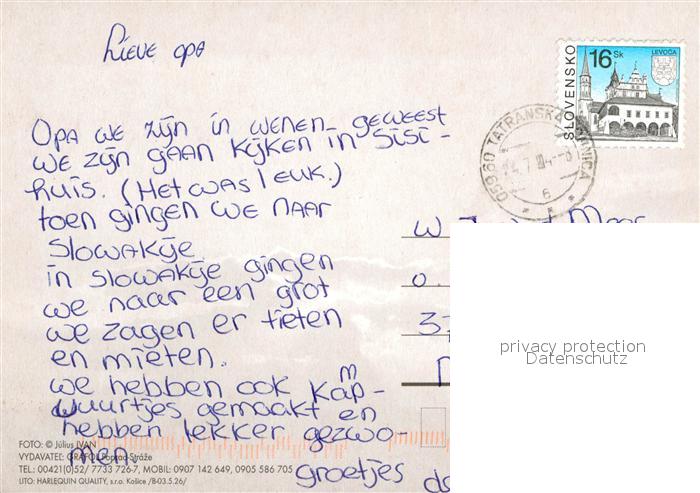 Lieve opa
Opa we zijn in wenen geweest
we zijn gaan kijken in sisi-
huis. (Het was leuk.)
toen gingen we naar
Slowakije
in slowakije gingen
we naar een grot
we zagen er tieten
en mieten.
we hebben ook kamp-
vuurtjes gemaakt en
hebben lekker gezwo-
men.
groetjes
16 Sk
LEVOČA
SLOVENSKO
05960 TATRANSKÁ
6
W
privacy protection
Datenschutz
FOTO: © Július IVAN
VYDAVATEĽ: GRAFON Poprad-Stráže
TEL: 00421(0)52/ 7733 726-7, MOBIL: 0907 142 649, 0905 586 705
LITO: HARLEQUIN QUALITY, s.r.o. Košice /B-03.5.26/